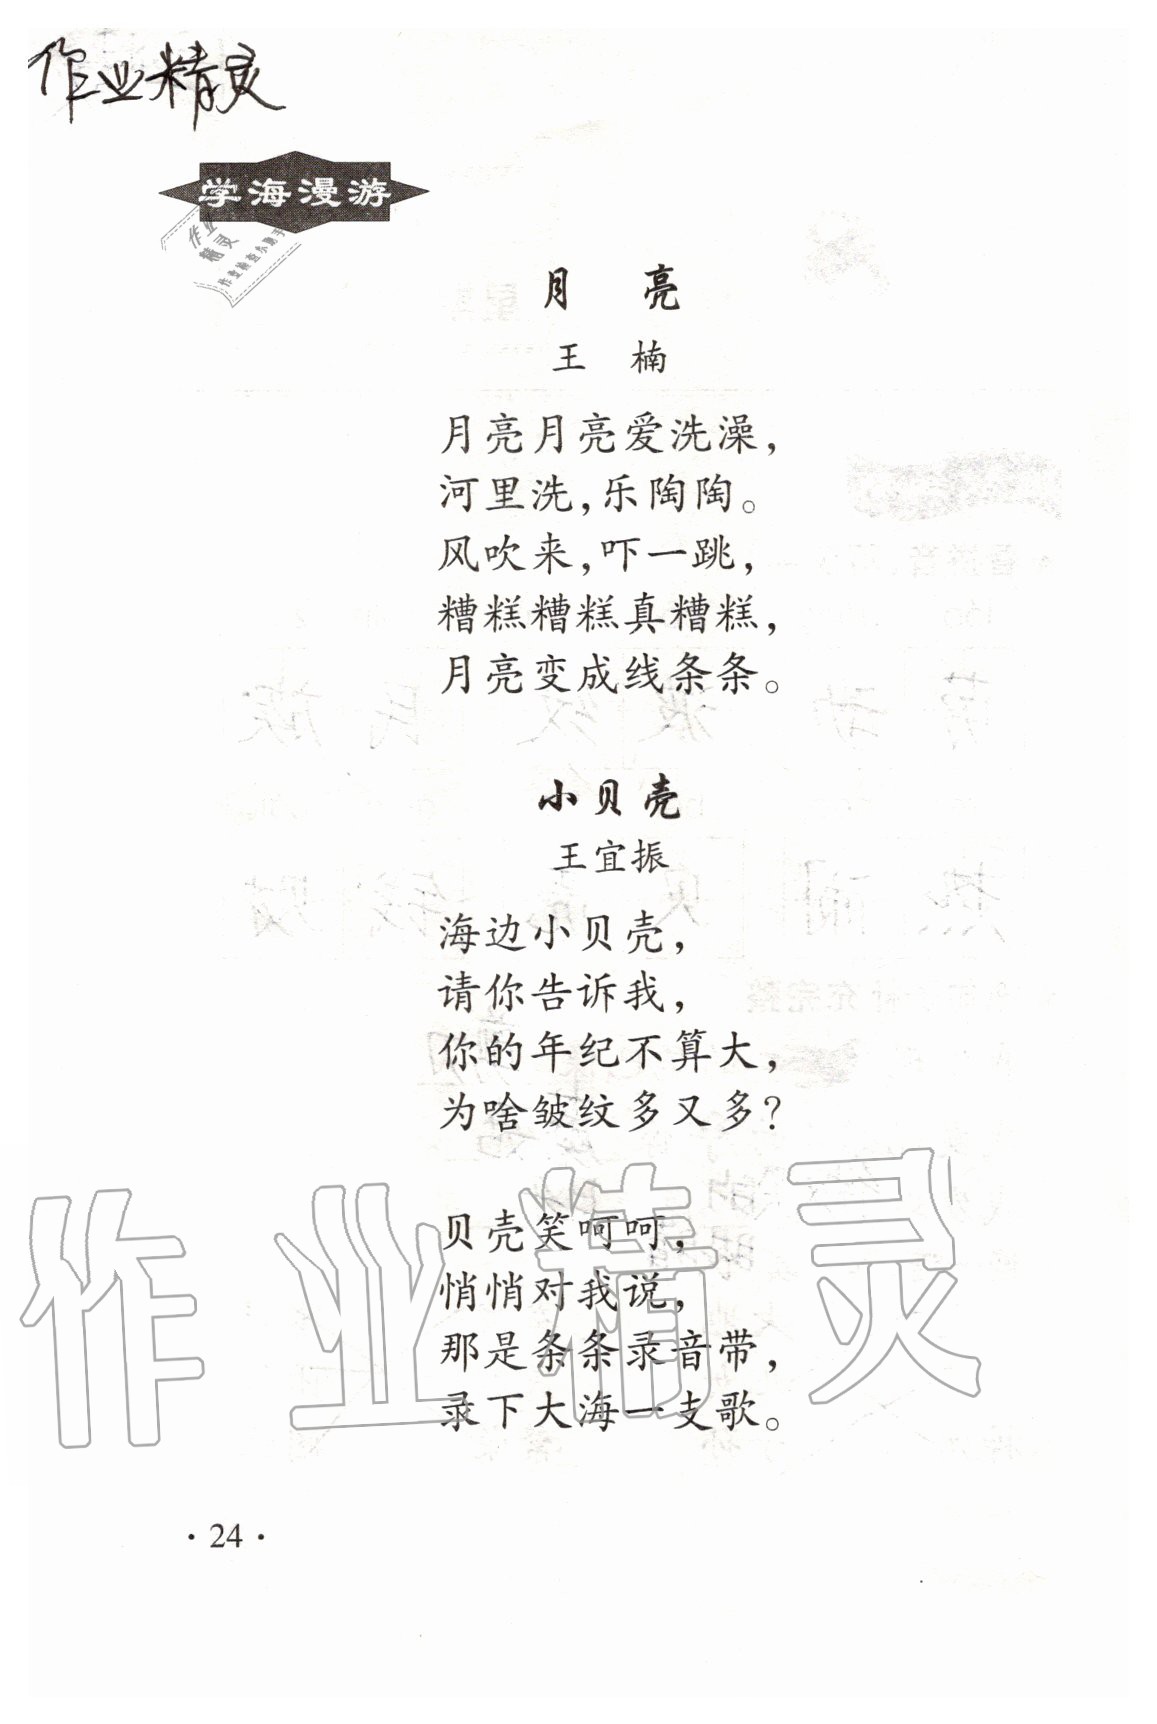 作业精灵
学海漫游
作业
精灵
作业检查小助手
月 亮
王 楠
月亮月亮爱洗澡，
河里洗，乐陶陶。
风吹来，吓一跳，
糟糕糟糕真糟糕，
月亮变成线条条。
小贝壳
王宜振
海边小贝壳，
请你告诉我，
你的年纪不算大，
为啥皱纹多又多？
贝壳笑呵呵，
悄悄对我说，
那是条条录音带，
录下大海一支歌。
作业精灵
·24·